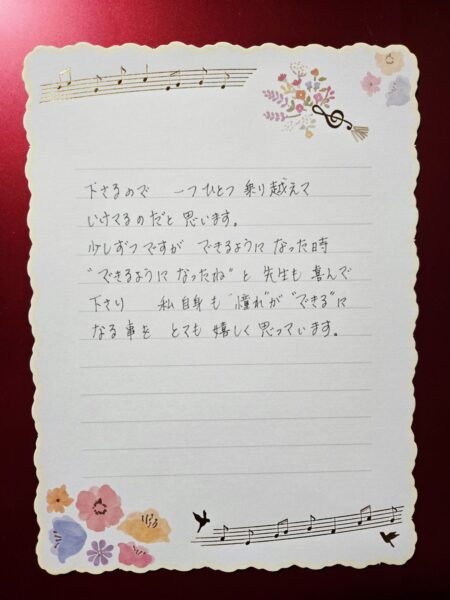 下さるので 一つひとつ 乗り越えて
いけてるのだと 思います。
少しずつですが できるように なった時
"できるように なったね" と 先生も 喜んで
下さり 私自身も "憧れ"が "できる"に
なる事を とても 嬉しく 思っています。